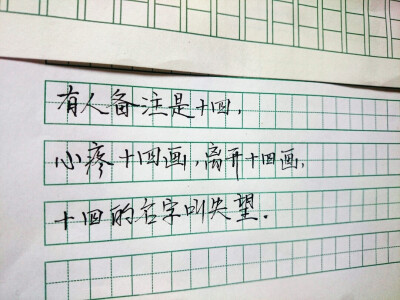 有人备注是十四，
心疼十四画，离开十四画，
十四的名字叫失望．